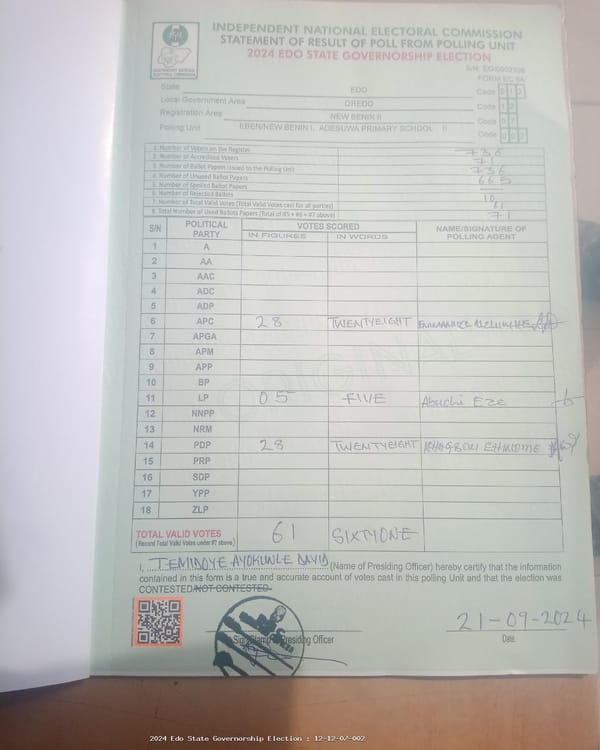 INDEPENDENT NATIONAL ELECTORAL COMMISSION
STATEMENT OF RESULT OF POLL FROM POLLING UNIT
2024 EDO STATE GOVERNORSHIP ELECTION
FORM EC 8A
State EDO Code 012
Local Government Area OREDO Code 12
Registration Area NEW BENIN II Code 07
Polling Unit EBEN/NEW BENIN I, ADESUWA PRIMARY SCHOOL II Code 002
1. Number of Voters on the Register 736
2. Number of Accredited Voters 71
3. Number of Ballot Papers Issued to the Polling Unit 736
4. Number of Unused Ballot Papers 665
5. Number of Spoiled Ballot Papers
6. Number of Rejected Ballots 10
7. Number of Total Valid Votes (Total Valid Votes cast for all parties) 61
8. Total Number of Used Ballots Papers (Total of #5 + #6 + #7 above) 71
S/N POLITICAL PARTY VOTES SCORED NAME/SIGNATURE OF POLLING AGENT
IN FIGURES IN WORDS
1 A
2 AA
3 AAC
4 ADC
5 ADP
6 APC 28 TWENTYEIGHT
7 APGA
8 APM
9 APP
10 BP
11 LP 05 FIVE Abuchi Eze
12 NNPP
13 NRM
14 PDP 28 TWENTYEIGHT
15 PRP
16 SDP
17 YPP
18 ZLP
TOTAL VALID VOTES 61 SIXTYONE
(Record Total Valid Votes under #7 above)
I, TEMIDOYE AYOKUNLE DAVID (Name of Presiding Officer) hereby certify that the information
contained in this form is a true and accurate account of votes cast in this polling Unit and that the election was
CONTESTED/NOT CONTESTED.
Sign/Stamp of Presiding Officer
21-09-2024
Date
2024 Edo State Governorship Election : 12-12-07-002